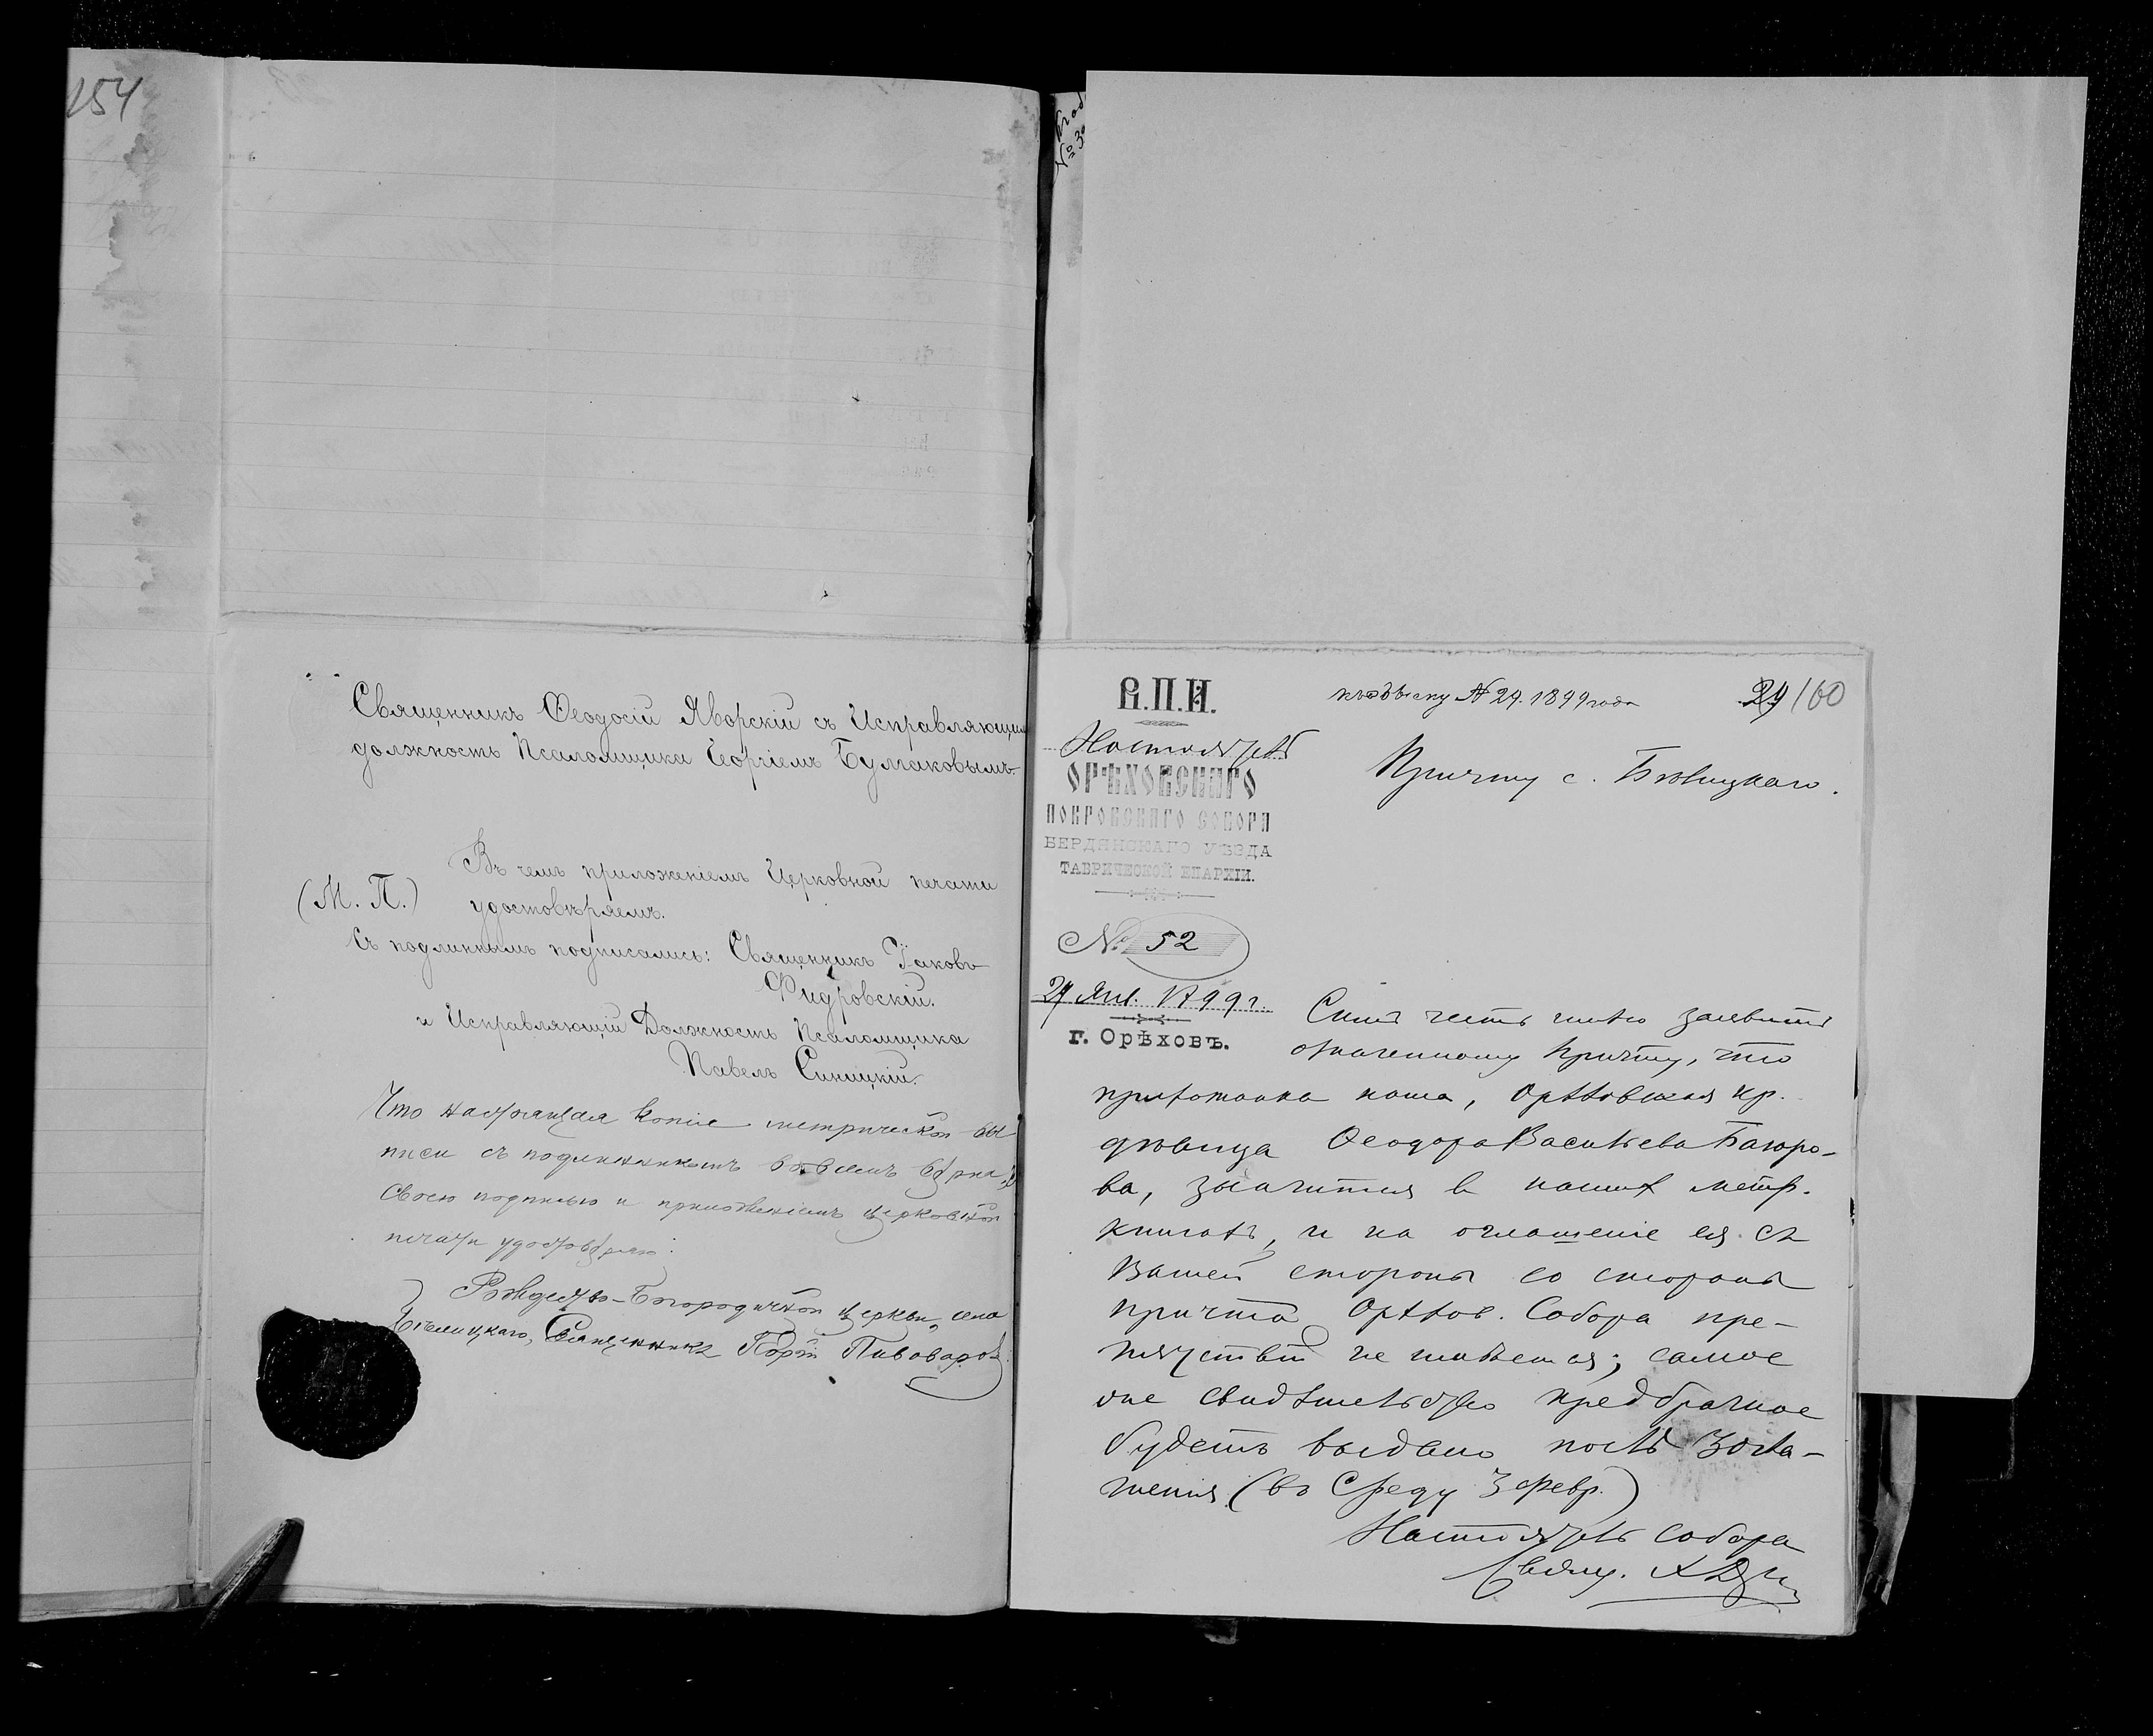 154
Священникъ Ѳеодосій Яворскій съ Исправляющимъ
должность Псаломщика Георгіемъ Булгаковымъ.
Въ чемъ приложеніемъ Церковной печати
(М. П.) удостовѣряемъ.
Съ подлиннымъ подписались: Священникъ Іаковъ
Фидровскій.
и Исправляющій Должность Псаломщика
Павелъ Синицкій.
Что настоящая копія метрической вы
писи съ подлинникомъ во всемъ вѣрна,
своею подписью и приложеніемъ церковной
печати удостовѣряю:
Рождество-Богородичной церкви, села
Бѣлицкаго, Священникъ Пивоваров
№ 3
В.П.И.
къ обыску № 29. 1899 года
29 160
Настоятель
ОРѢХОВСКАГО
ПОКРОВСКАГО СОБОРА
БЕРДЯНСКАГО УѢЗДА
ТАВРИЧЕСКОЙ ЕПАРХІИ.
Причту с. Бѣлицкаго.
№ 52
29 Янв. 1899 г.
г. Орѣховъ.
Симъ честь имѣю заявить
означенному причту, что
прихожанка наша, Орѣховская кр.
дѣвица Ѳеодора Васильева Багро-
ва, значится въ нашихъ метр.
книгахъ, и на оглашеніе ея съ
Вашей стороны со стороны
причта Орѣхов. Собора пре-
пятствій не имѣется; самое
же свидѣтельство предбрачное
будетъ выдано послѣ 3 огла-
шенія (въ Среду 3 февр.)
Настоятель собора
Свящ.